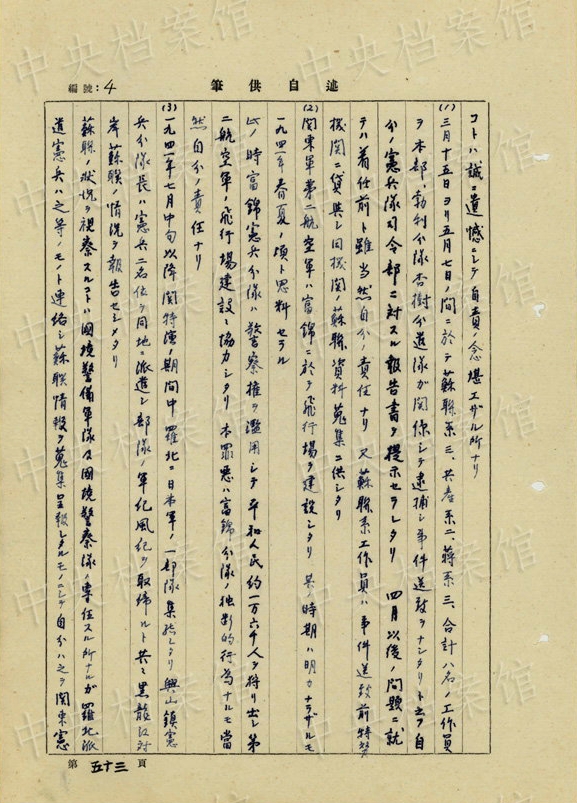 中央档案馆
編號:4
筆供自述
コトハ誠ニ遺憾ニシテ自責ノ念堪エザル所ナリ
(1)三月十五日ヨリ五月七日ノ間ニ於テ蘇聯系三、共産系二、蒋系三、合計八名ノ工作員
ヲ本部、勃利分隊杏樹分遣隊ガ関係シテ逮捕シ事件送致ヲナシタリト云フ自
分ノ憲兵隊司令部ニ対スル報告書ヲ提示セラレタリ 四月以後ノ問題ニ就
テハ着任前ト雖当然自分ノ責任ナリ 又蘇聯系工作員ハ事件送致前特務
機関ニ貸與シ同機関ノ蘇聯資料蒐集ニ供シタリ
(2)関東軍第二航空軍ハ富錦ニ於テ飛行場ヲ建設シタリ 其ノ時期ハ明カナラザルモ
一九四一年春夏ノ頃ト思料セラル
此ノ時富錦憲兵分隊ハ警察権ヲ濫用シテ平和人民約一万六千人ヲ狩リ出シ第
二航空軍ノ飛行場建設ニ協力シタリ 本罪悪ハ富錦分隊ノ独断的行為ナルモ當
然自分ノ責任ナリ
(3)一九四一年七月中旬以降関特演ノ期間中羅北ニ日本軍ノ一部隊集結シタリ 興山鎮憲
兵分隊長ハ憲兵二名位ヲ同地ニ派遣シ部隊ノ軍紀風紀ヲ取締ルト共ニ黒龍江対
岸蘇聯ノ情況ヲ報告セシメタリ
蘇聯ノ状況ヲ視察スルコトハ國境警備軍隊及國境警察隊ノ専任スル所ナルガ羅北派
遣憲兵ハ之等ノモノト連絡シ蘇聯情報ヲ蒐集呈報シタルモノニシテ自分ハ之ヲ関東憲
第五十三頁